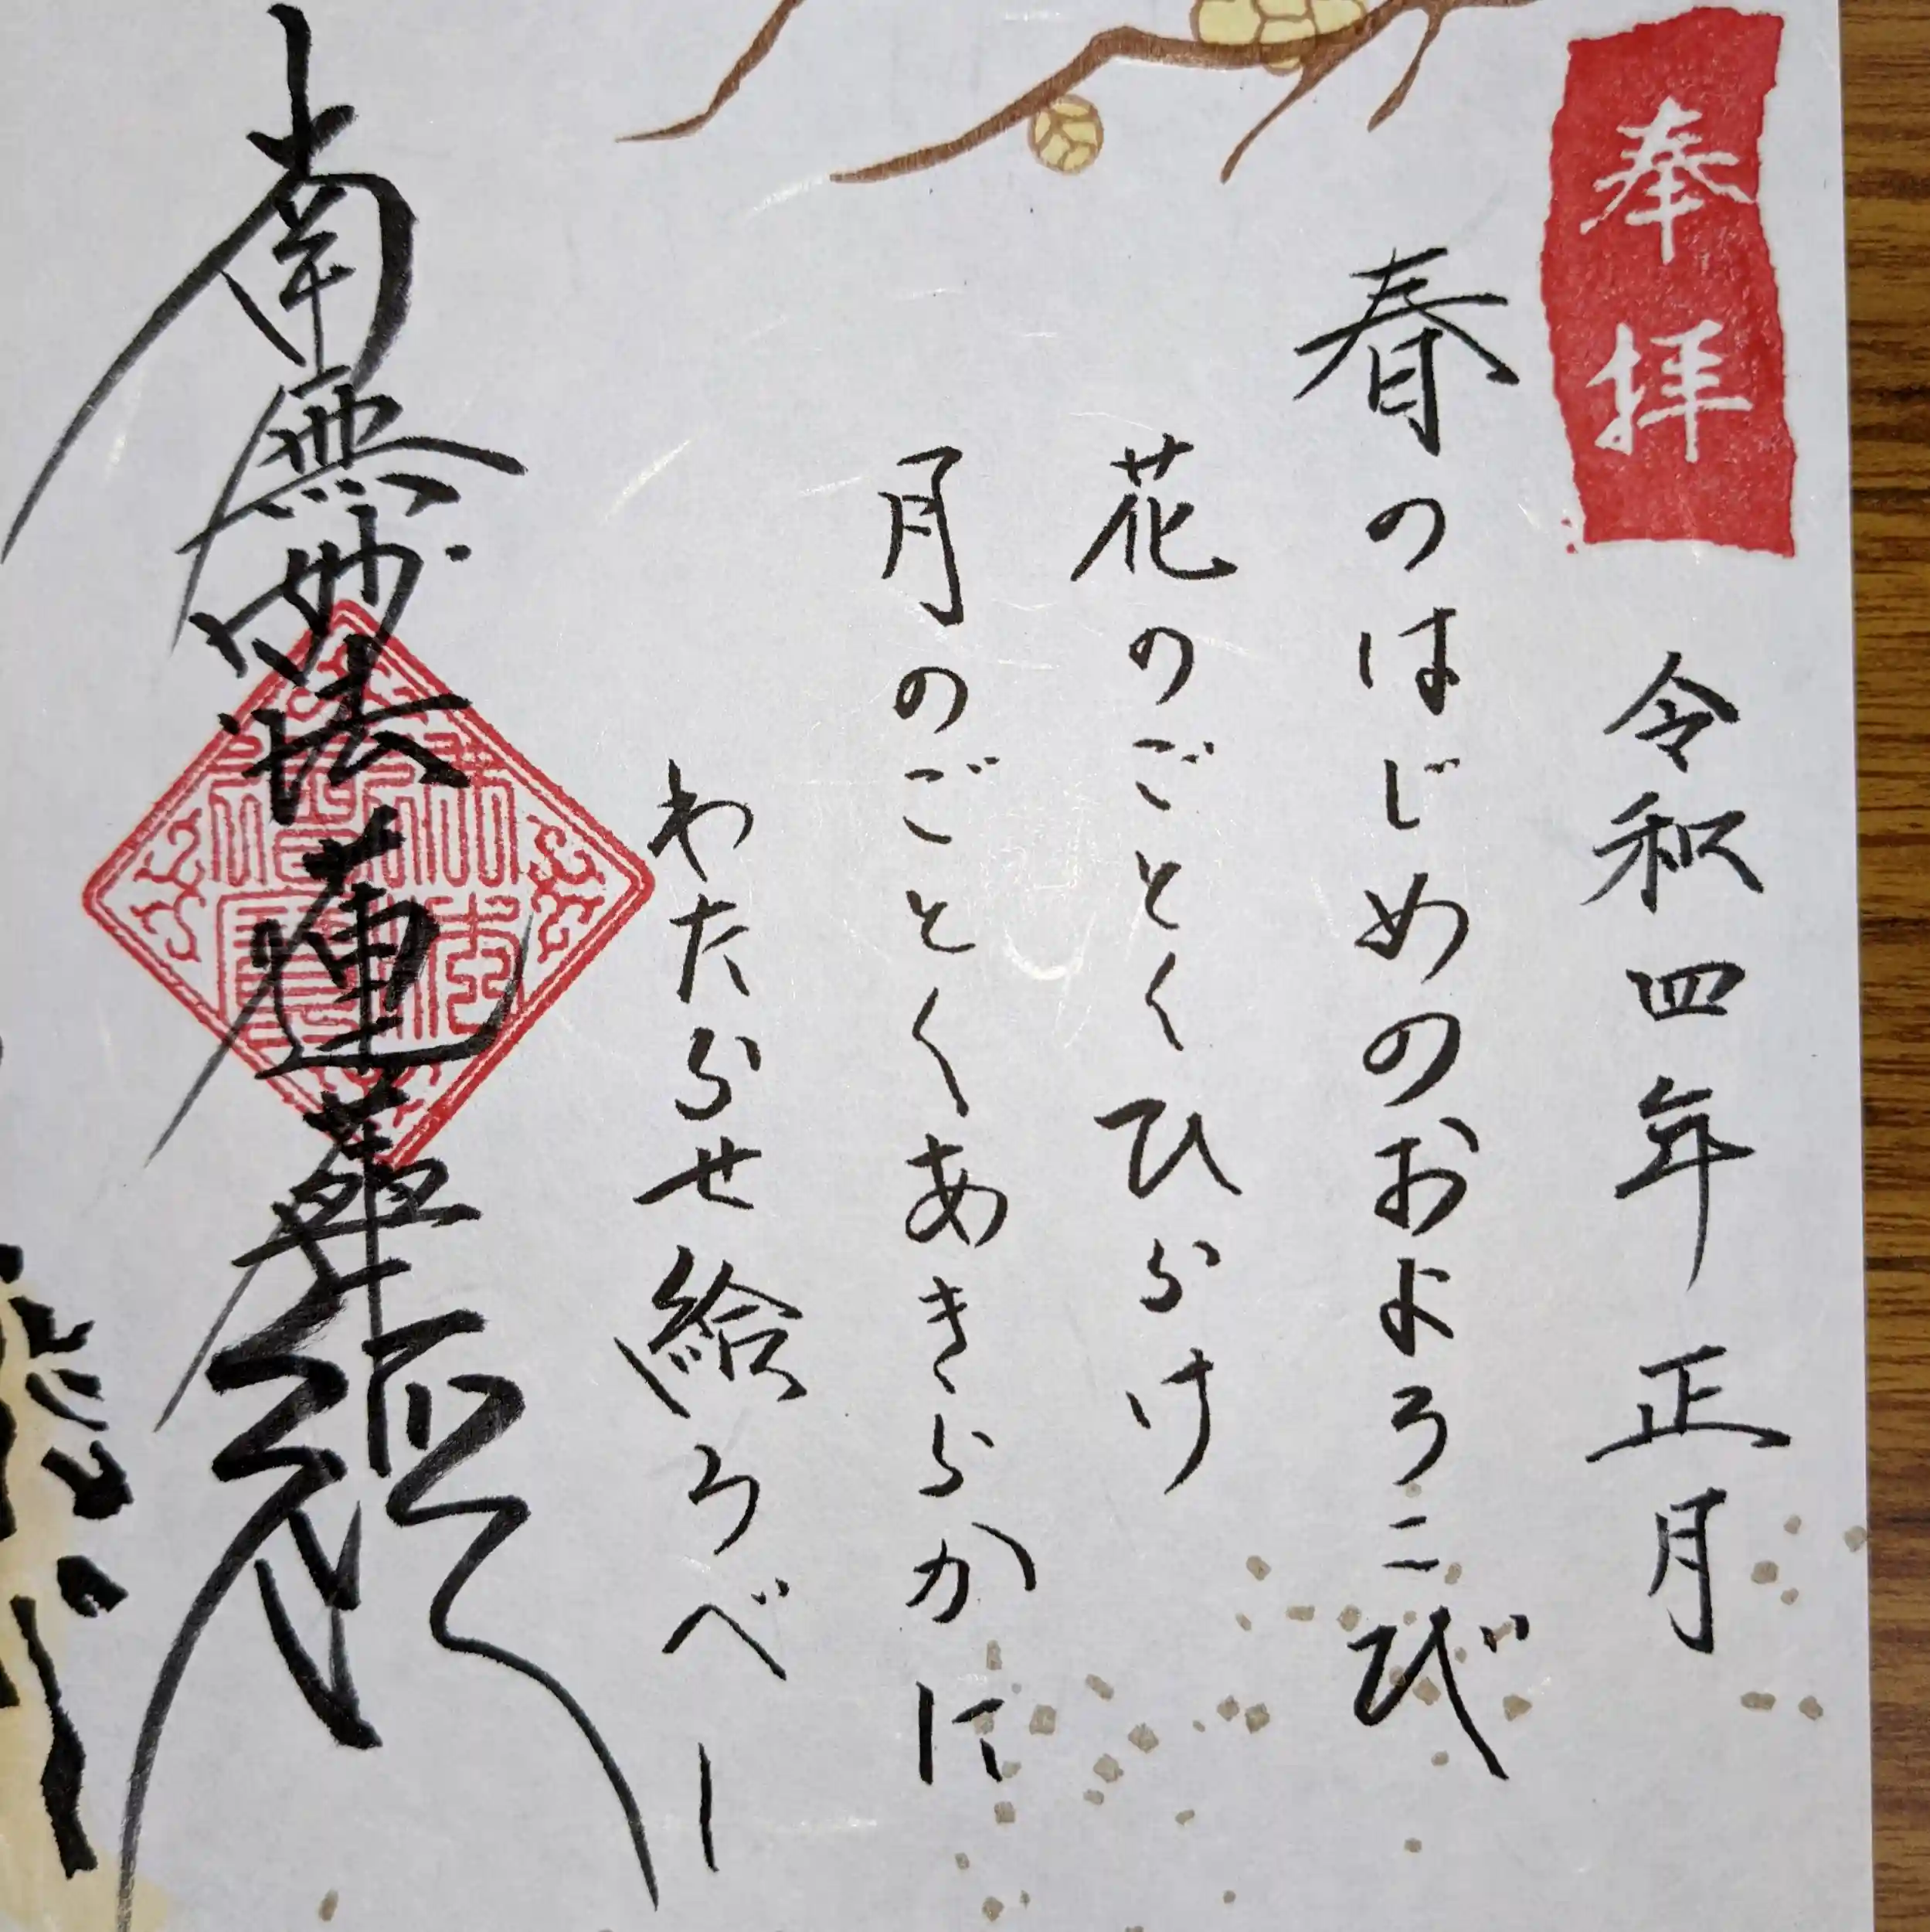 奉拝
令和四年 正月
春のはじめのおよろこび
花のごとくひらけ
月のごとくあきらかに
わたらせ給うべし
南無妙法蓮華経